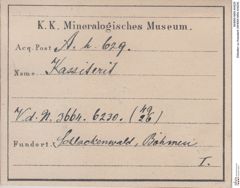 K. K. Mineralogisches Museum.
Acq. Post A. h. 629.
Name: Kassiterit
V. d. N. 3664. 6230. (49/26)
Fundort: Schlackenwald, Böhmen
I.